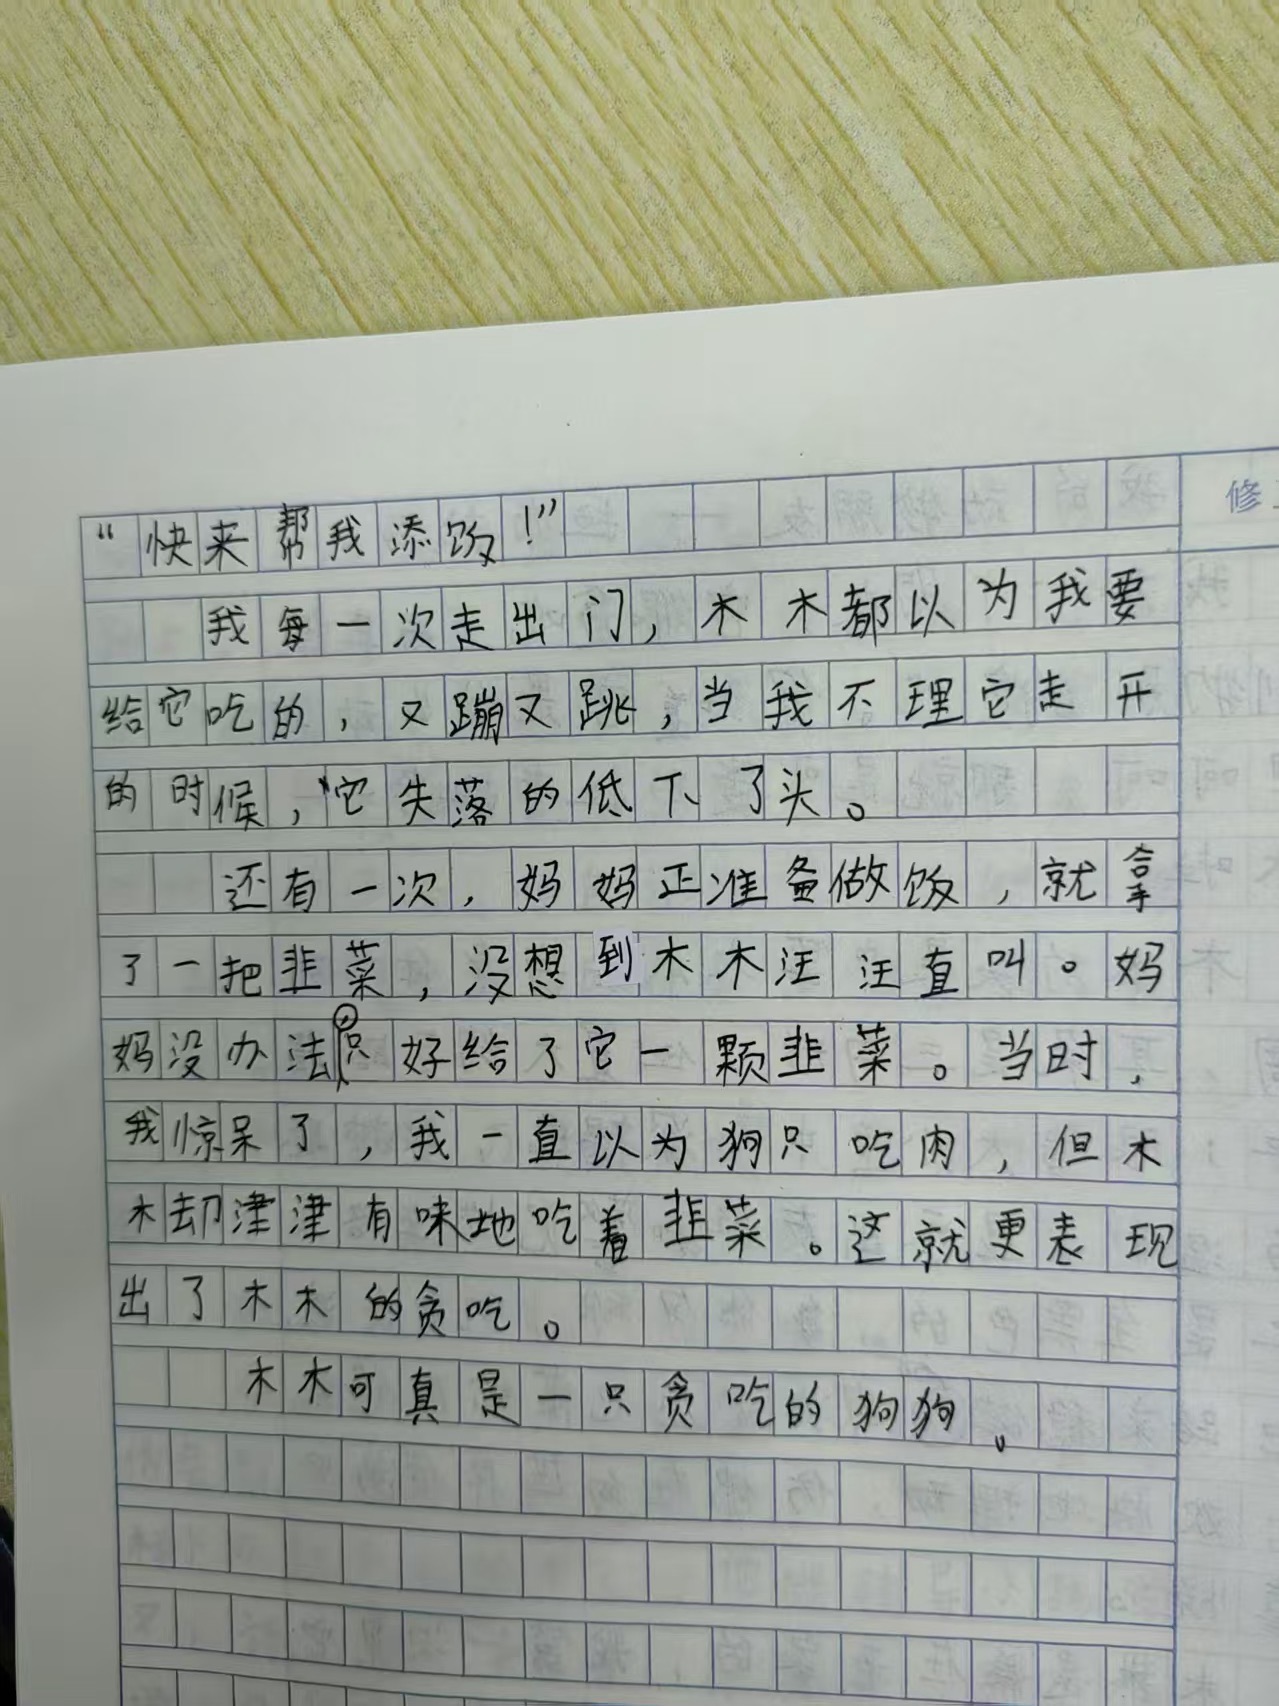 “快来帮我添饭！”
我每一次走出门，木木都以为我要
给它吃的，又蹦又跳，当我不理它走开
的时候，它失落的低下了头。
还有一次，妈妈正准备做饭，就拿
了一把韭菜，没想到木木汪汪直叫。妈
妈没办法，只好给了它一颗韭菜。当时，
我惊呆了，我一直以为狗只吃肉，但木
木却津津有味地吃着韭菜。这就更表现
出了木木的贪吃。
木木可真是一只贪吃的狗狗。
修